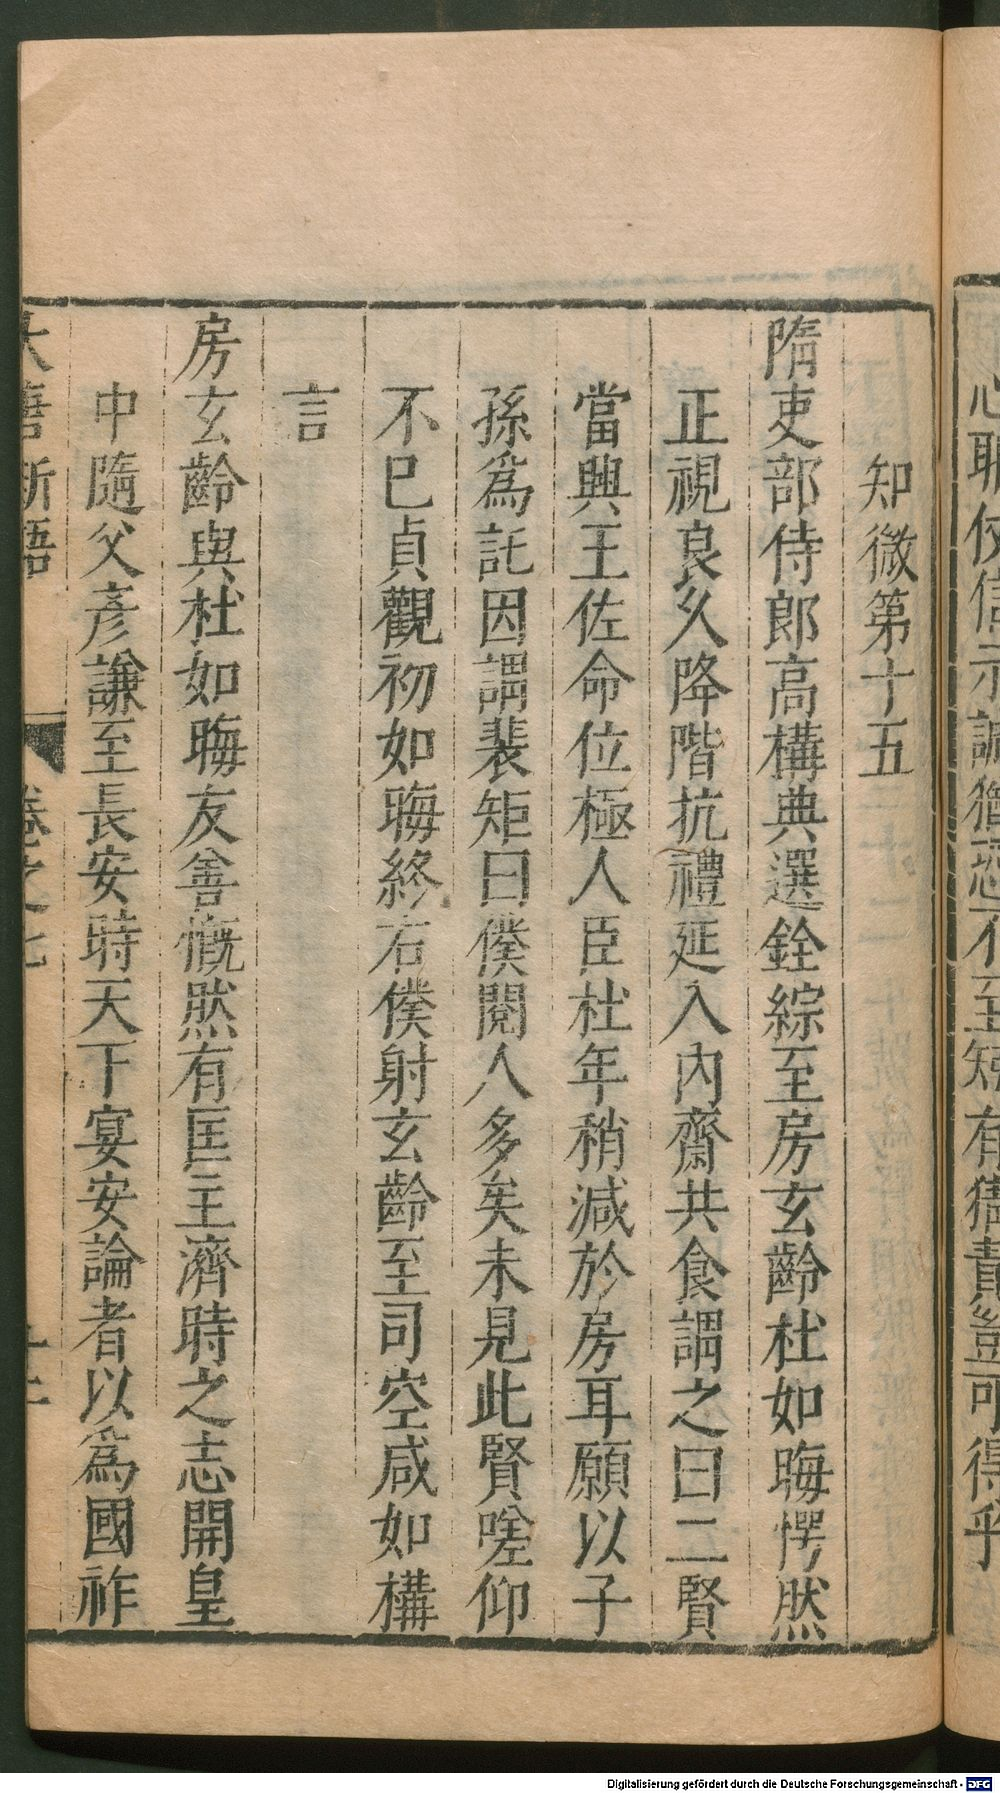 心耻佞信示誠猶恐不至矧有獄責豈可得乎
知微第十五
隋吏部侍郎高構典選銓綜至房玄齡杜如晦愕然
正視良久降階抗禮延入內齋共食謂之曰二賢
當興王佐命位極人臣杜年稍減於房耳願以子
孫爲託因謂裴矩曰僕閱人多矣未見此賢嗟仰
不已貞觀初如晦終右僕射玄齡至司空咸如構
言
房玄齡與杜如晦友善慨然有匡主濟時之志開皇
中隨父彥謙至長安時天下宴安論者以爲國祚
大唐新語 卷之七
Digitalisierung gefördert durch die Deutsche Forschungsgemeinschaft - DFG